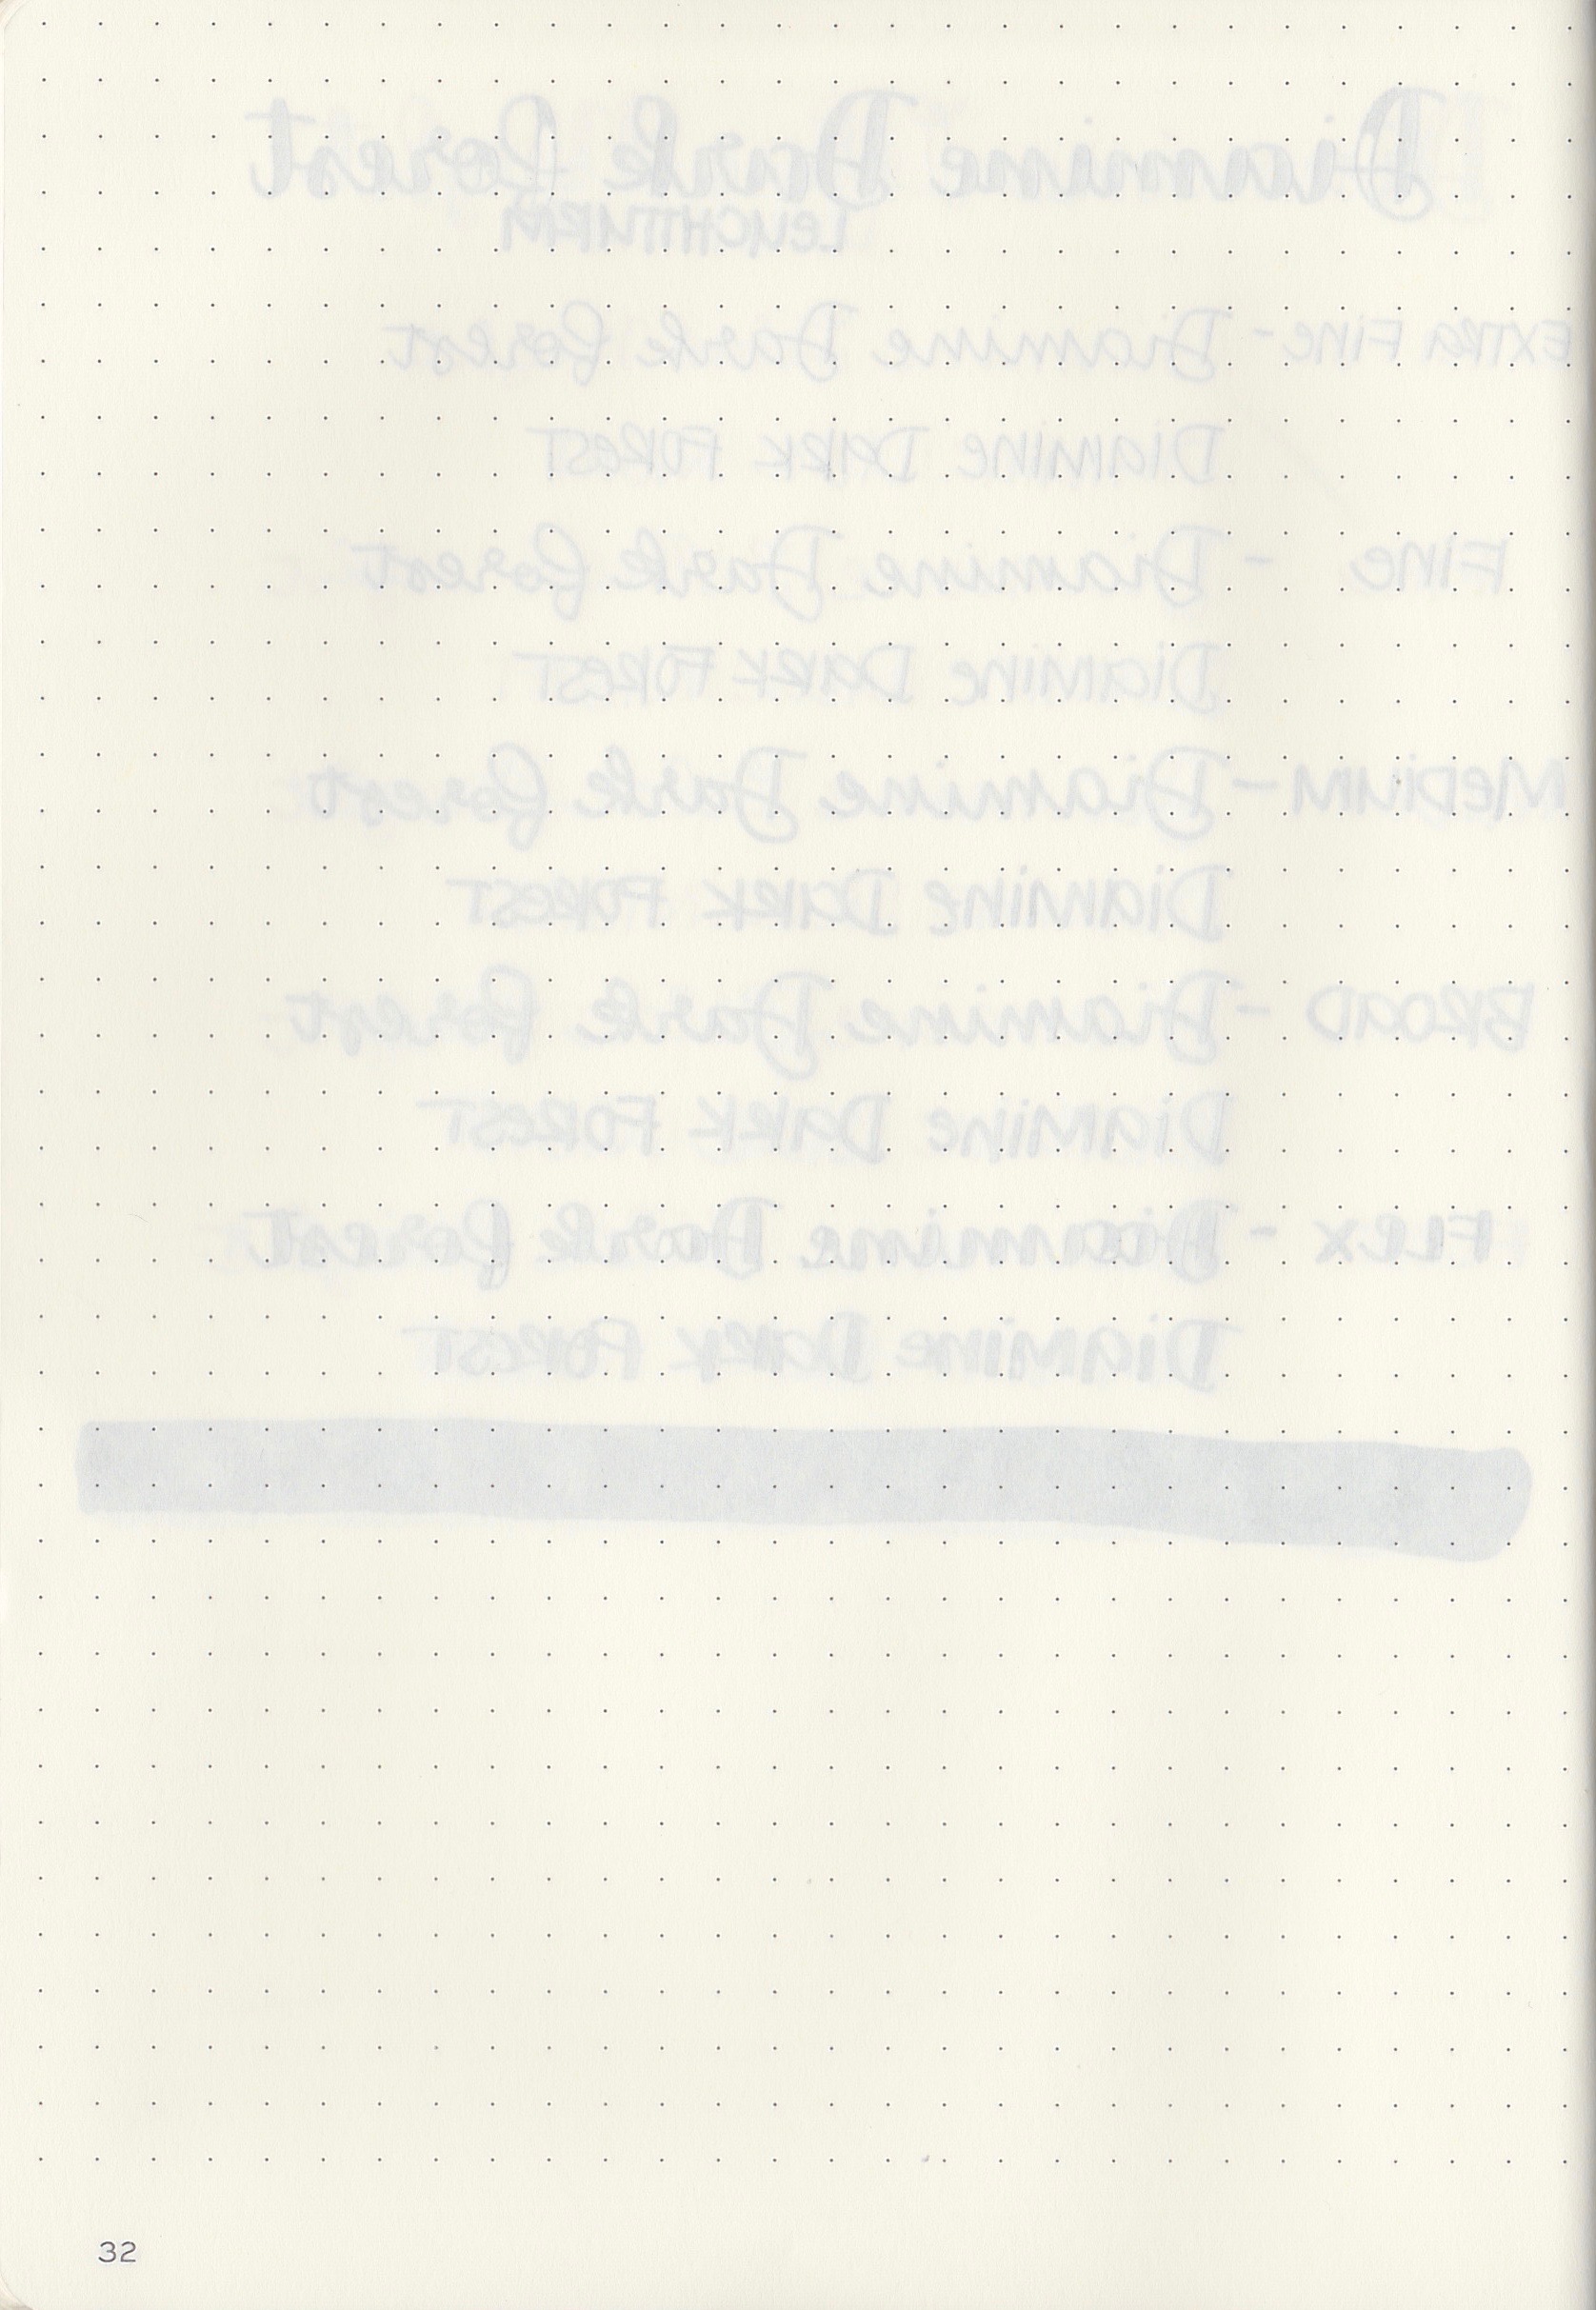 Diamine Dark Forest
LEUCHTTURM
EXTRA FINE - Diamine Dark Forest
DIAMINE DARK FOREST
FINE - Diamine Dark Forest
DIAMINE DARK FOREST
MEDIUM - Diamine Dark Forest
DIAMINE DARK FOREST
BROAD - Diamine Dark Forest
DIAMINE DARK FOREST
FLEX - Diamine Dark Forest
DIAMINE DARK FOREST
32